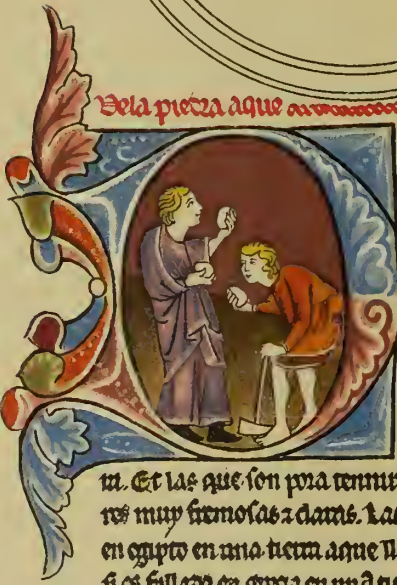 Dela piedra aque
Et las que son pora tennir
res muy fremosas ⁊ claras. Las
en egipto en una tierra aque ll